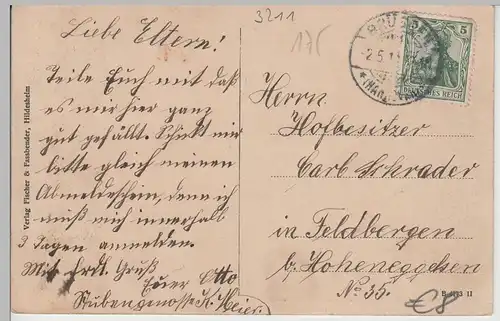 3211
175
Liebe Eltern!
Teile Euch mit daß
es mir hier ganz
gut gefällt. Schickt mir
bitte gleich meinen
Abmeldeschein, denn ich
muß mich innerhalb
3 Tagen anmelden.
Mit hrdl. Gruß
Euer Otto
Stubengenosse K. Meier.
Verlag Fischer & Fassbender, Hildesheim
2.5.1
(HANNOVER)
5
DEUTSCHES REICH
Herrn
Hofbesitzer
Carl Schrader
in Feldbergen
b/ Hoheneggelsen
No. 35.
II
€8